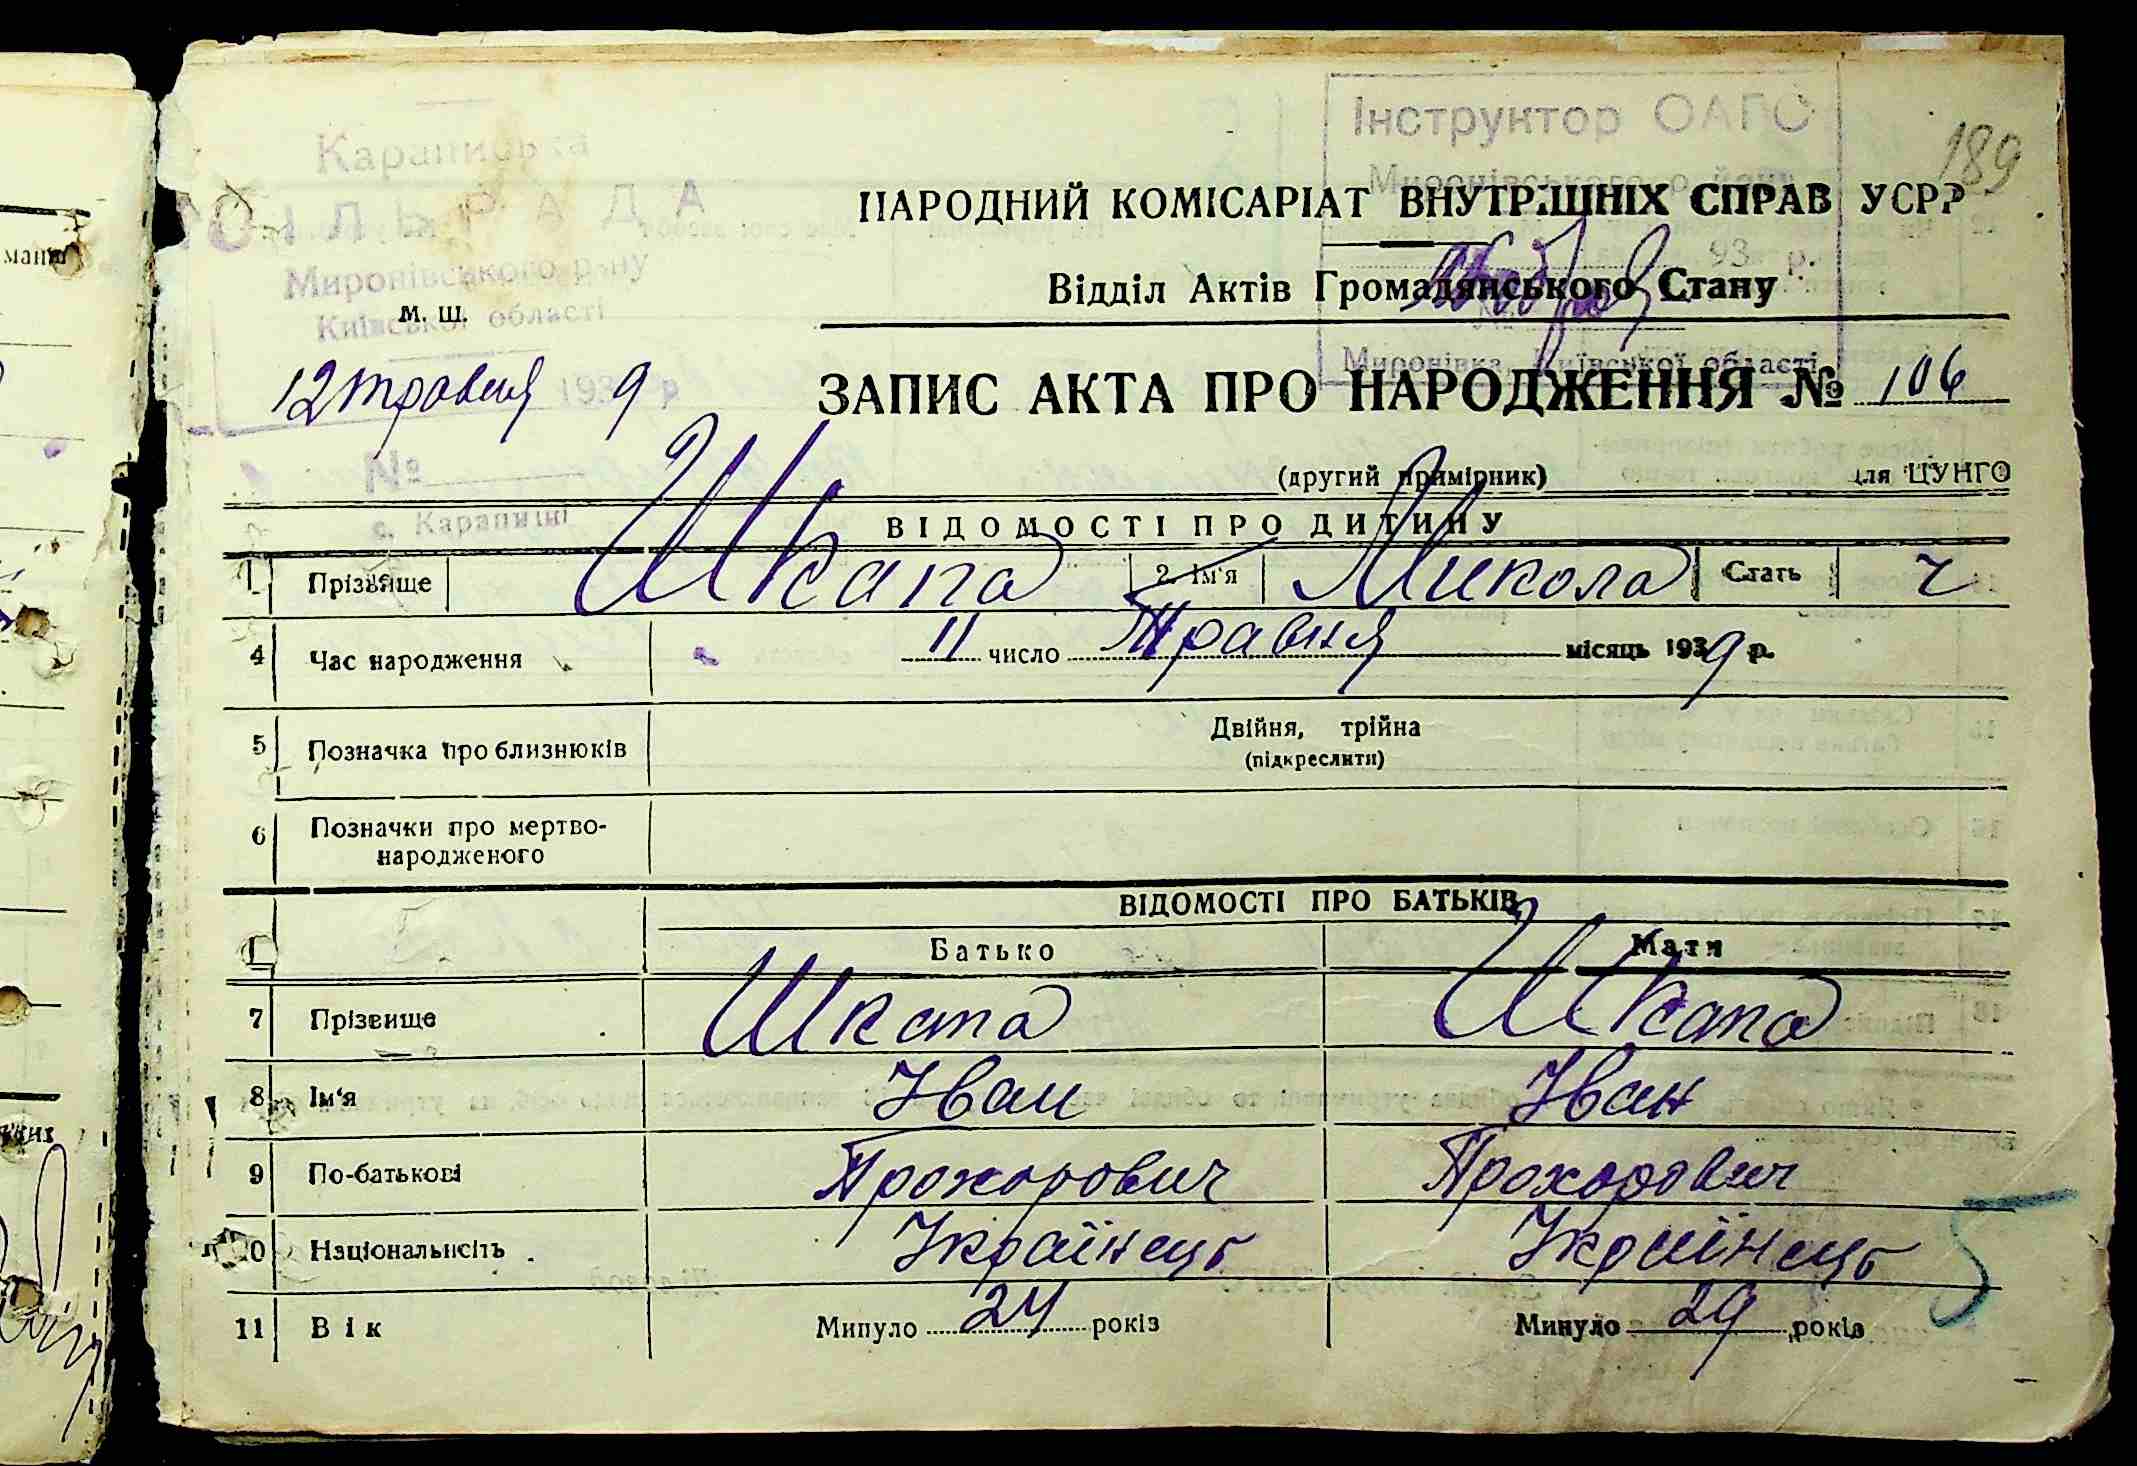 189
Інструктор ОАГС
Миронівського району
193 р.
№
Миронівка, Київської області
Караписька
СІЛЬРАДА
Миронівського р-ну
Київської області
м. ш.
12 травня 1939 р
№
с. Карапиші
НАРОДНИЙ КОМІСАРІАТ ВНУТРІШНІХ СПРАВ УСРР
Відділ Актів Громадянського Стану
ЗАПИС АКТА ПРО НАРОДЖЕННЯ № 106
(другий примірник) для ЦУНГО
ВІДОМОСТІ ПРО ДИТИНУ
1 Прізвище Шкапа 2. Ім'я Микола Стать ч
4 Час народження 11 число Травня місяць 1939 р.
5 Позначка про близнюків Двійня, трійна
(підкреслити)
6 Позначки про мертво-
народженого
ВІДОМОСТІ ПРО БАТЬКІВ
Батько Мати
7 Прізвище Шкапа Шкапа
8 Ім'я Іван Іван
9 По-батькові Прохорович Прохорович
10 Національність Українець Українець
5
11 Вік Минуло 24 років Минуло 29 років